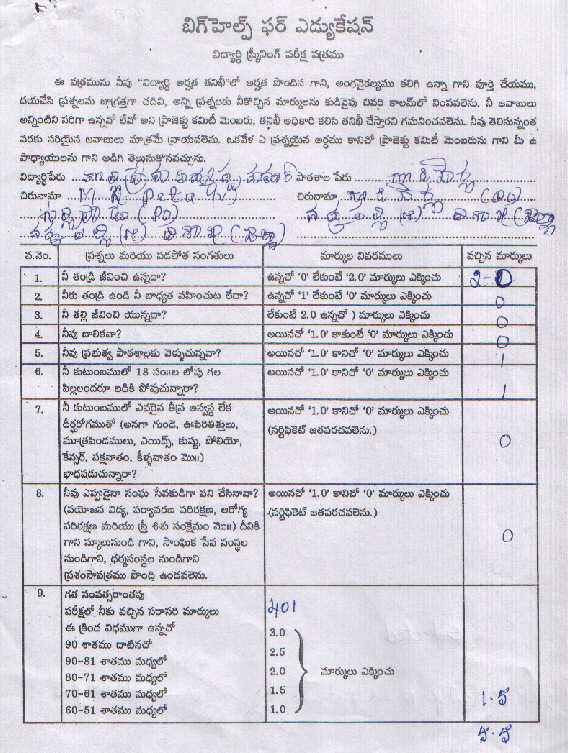 బిగ్‌హెల్ప్ ఫర్ ఎడ్యుకేషన్
విద్యార్థి స్క్రీనింగ్ పరీక్ష పత్రము
ఈ పత్రమును నీవు "విద్యార్థి అర్హత తనిఖీ"లో అర్హత పొందిన గాని, అంగవైకల్యము కలిగి ఉన్నా గాని పూర్తి చేయుము,
దయచేసి ప్రశ్నలను జాగ్రత్తగా చదివి, అన్ని ప్రశ్నలకు నీకొచ్చిన మార్కులను కుడివైపు చివరి కాలమ్‌లో నింపవలెను. నీ జవాబులు
అన్నింటిని సరిగా ఉన్నవో లేవో అని ప్రాజెక్టు కమిటీ మెంబరు, తనిఖీ అధికారి కలిసి తనిఖీ చేస్తారని గమనించవలెను. నీవు తెలిసినంత
వరకు సరియైన జవాబులు మాత్రమే వ్రాయవలెను. ఒకవేళ ఏ ప్రశ్నయైన అర్థము కానిచో ప్రాజెక్టు కమిటీ మెంబరును గాని మీ ఉ
పాధ్యాయులను గాని అడిగి తెలుసుకొనవచ్చును.
విద్యార్థిపేరు పాఠశాల పేరు
చిరునామా చిరునామా
వ.నెం. ప్రశ్నలు మరియు పరిశోధిత సంగతులు మార్కుల వివరములు వచ్చిన మార్కులు
1. నీ తండ్రి జీవించి ఉన్నవా? ఉన్నచో '0' లేకుంటే '2.0' మార్కులు ఎక్కించు 2-0
2. నీకు తండ్రి ఉండి నీ బాధ్యత వహించుట లేదా? ఉన్నచో '1' లేకుంటే '0' మార్కులు ఎక్కించు 0
3. నీ తల్లి జీవించి యున్నదా? లేకుంటే 2.0 ఉన్నచో ) మార్కులు ఎక్కించు 0
4. నీవు బాలికవా? అయినచో '1.0' కాకుంటే '0' మార్కులు ఎక్కించు 0
5. నీవు ప్రభుత్వ పాఠశాలకు వెళ్ళుచున్నవా? అయినచో '1.0' కానిచో '0' మార్కులు ఎక్కించు 1
6. నీ కుటుంబములో 18 సం॥ల లోపు గల అయినచో '1.0' కానిచో '0' మార్కులు ఎక్కించు
పిల్లలందరూ బడికి పోవుచున్నారా? 1
7. నీ కుటుంబములో ఎవరైన తీవ్ర అస్వస్థ లేక అయినచో '1.0' కానిచో '0' మార్కులు ఎక్కించు
దీర్ఘరోగముతో (అనగా గుండె, ఊపిరితిత్తులు, (సర్టిఫికెట్ జతపరచవలెను.)
మూత్రపిండములు, ఎయిడ్స్, కుష్టు, పోలియో, 0
కేన్సర్, పక్షవాతం, కీళ్ళవాతం మొ॥)
బాధపడుచున్నారా?
8. నీవు ఎప్పుడైనా సంఘ సేవకుడిగా పని చేసినావా? అయినచో '1.0' కానిచో '0' మార్కులు ఎక్కించు
(వయోజన విద్య, పర్యావరణ పరిరక్షణ, ఆరోగ్య (సర్టిఫికెట్ జతపరచవలెను.)
పరిరక్షణ మరియు స్త్రీ శిశు సంక్షేమం మొ॥) దీనికి
గాను స్కూలునుండి గాని, సాంఘిక సేవ సంస్థల 0
నుండిగాని, ధర్మసంస్థల నుండిగాని
ప్రశంసాపత్రము పొంది ఉండవలెను.
9. గత సంవత్సరాంతపు
పరీక్షలో నీకు వచ్చిన సరాసరి మార్కులు 401
ఈ క్రింద విధముగా ఉన్నచో
90 శాతము దాటినచో 3.0
90-81 శాతము మధ్యలో 2.5
80-71 శాతము మధ్యలో 2.0 మార్కులు ఎక్కించు
70-61 శాతము మధ్యలో 1.5
60-51 శాతము మధ్యలో 1.0 1-5
5-5